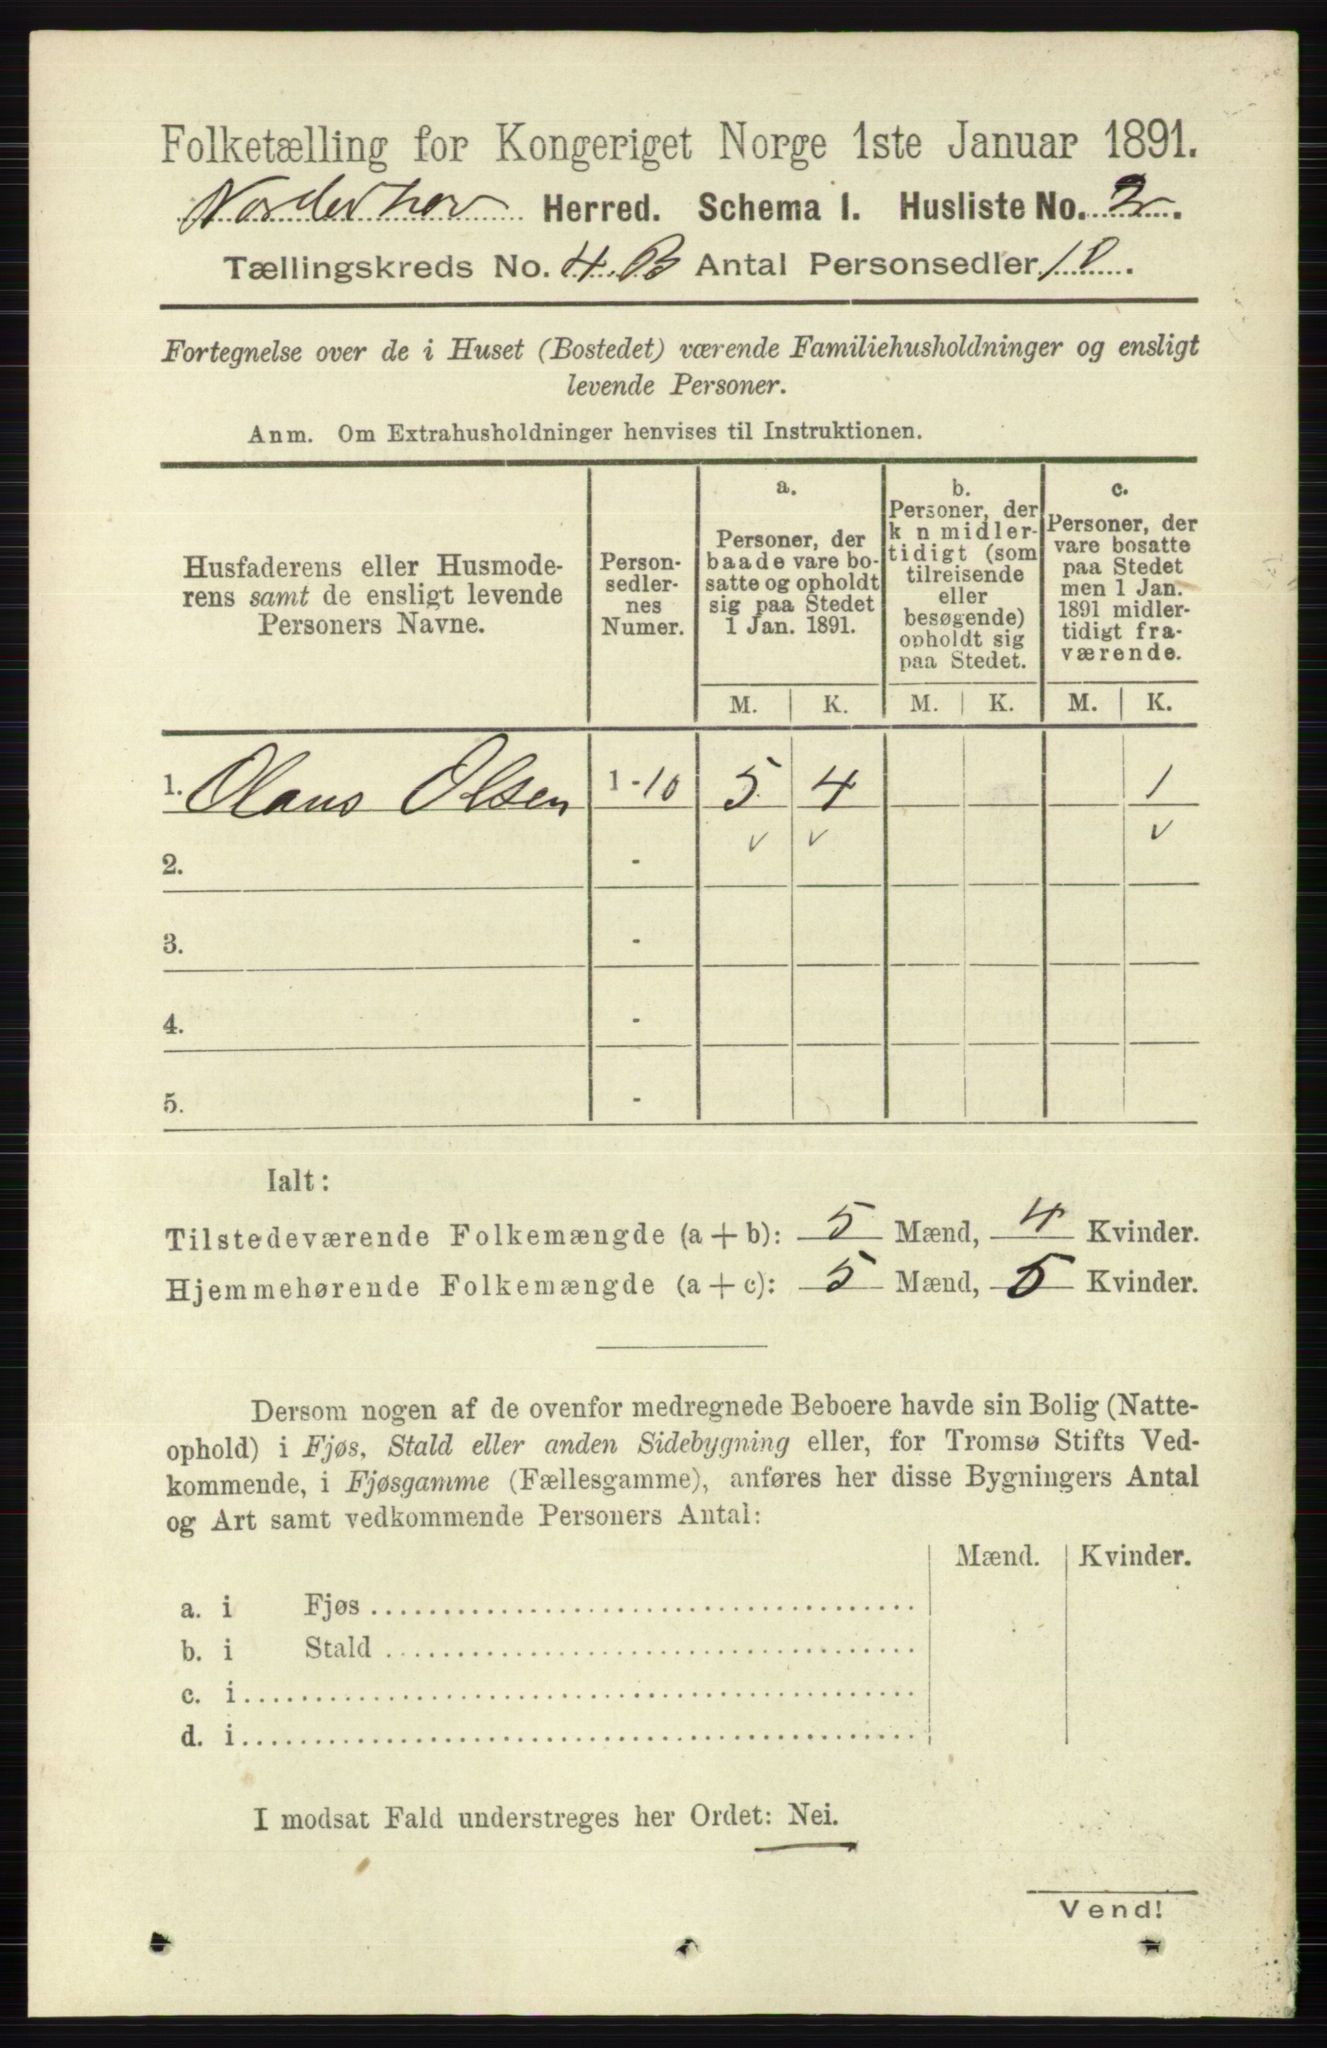 Folketælling for Kongeriget Norge 1ste Januar 1891.
Norderhov Herred. Schema I. Husliste No. 2.
Tællingskreds No. 4 B Antal Personsedler 10.
Fortegnelse over de i Huset (Bostedet) værende Familiehusholdninger og ensligt
levende Personer.
Anm. Om Extrahusholdninger henvises til Instruktionen.
Husfaderens eller Husmode-
rens samt de ensligt levende
Personers Navne.
Person-
sedler-
nes
Numer.
a.
Personer, der
baade vare bo-
satte og opholdt
sig paa Stedet
1 Jan. 1891.
b.
Personer, der
k n midler-
tidigt (som
tilreisende
eller
besøgende)
opholdt sig
paa Stedet.
c.
Personer, der
vare bosatte
paa Stedet
men 1 Jan.
1891 midler-
tidigt fra-
værende.
M. K. M. K. M. K.
1. Olaus Olsen 1-10 5 4 1
v v v
2. -
3. -
4. -
5. -
Ialt:
Tilstedeværende Folkemængde (a + b): 5 Mænd, 4 Kvinder.
Hjemmehørende Folkemængde (a + c): 5 Mænd, 5 Kvinder.
Dersom nogen af de ovenfor medregnede Beboere havde sin Bolig (Natte-
ophold) i Fjøs, Stald eller anden Sidebygning eller, for Tromsø Stifts Ved-
kommende, i Fjøsgamme (Fællesgamme), anføres her disse Bygningers Antal
og Art samt vedkommende Personers Antal:
Mænd. Kvinder.
a. i Fjøs
b. i Stald
c. i
d. i
I modsat Fald understreges her Ordet: Nei.
Vend!